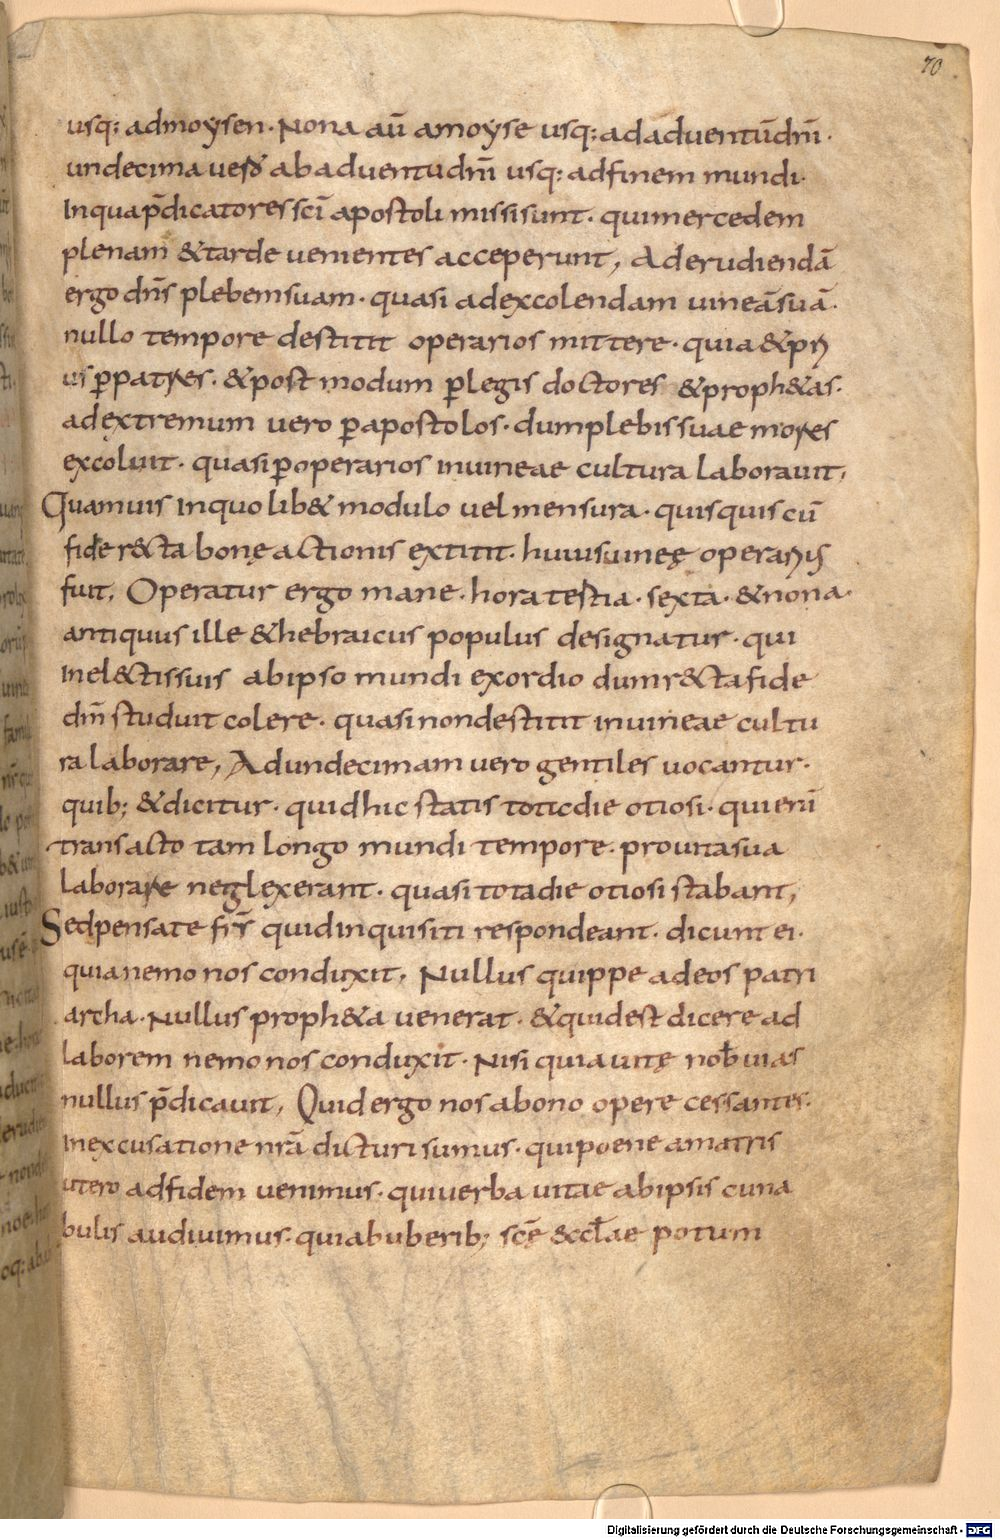 70
usq: admoysen. Nona aū amoyse usq: adaduentūdnī.
undecima uero abaduentudnī usq: adfinem mundi.
Inquap̄dicatores scī apostoli missisunt. quimercedem
plenam &tarde uenientes acceperunt, Aderudiendā
ergo dn̄s plebemsuam. quasi adexcolendam uineāsuā.
nullo tempore destitit operarios mittere. quia &pri
us ꝑpatres. &postmodum ꝑlegis doctores &proph&as.
adextremum uero ꝑapostolos. dumplebissuae mores
excoluit. quasiꝑoperarios inuineae cultura laborauit,
Quamuis inquolib& modulo uel mensura. quisquis cū
fide r&cta bonę actionis extitit. huiusuineę operariis
fuit, Operatur ergo mane. hora tertia. sexta. &nona.
antiquus ille &hebraicus populus designatur. qui
inel&ctissuis abipso mundi exordio dumr&ctafide
dm̄ studuit colere. quasinondestitit inuineae cultu
ra laborare, Adundecimam uero gentiles uocantur.
quib; &dicitur. quidhic statis totadie otiosi. quieni̅
transacto tam longo mundi tempore. prouitasua
laborare neglexerant. quasi totadie otiosi stabant,
Sedpensate fr̄s quidinquisiti respondeant. dicunt ei.
quianemo nos conduxit. Nullus quippe adeos patri
archa. Nullus proph&a uenerat. &quidest dicere ad
laborem nemo nos conduxit. Nisi quiauitę nob̄ uias
nullus p̄dicauit, Quid ergo nos abono opere cessantes.
inexcusatione nrā dicturi sumus. quipoene amatris
utero adfidem uenimus. quiuerba uitae abipsis cuna
bulis audiuimus. quiabuberib; scę̄ &ccl̄ae potum
Digitalisierung gefördert durch die Deutsche Forschungsgemeinschaft - DFG